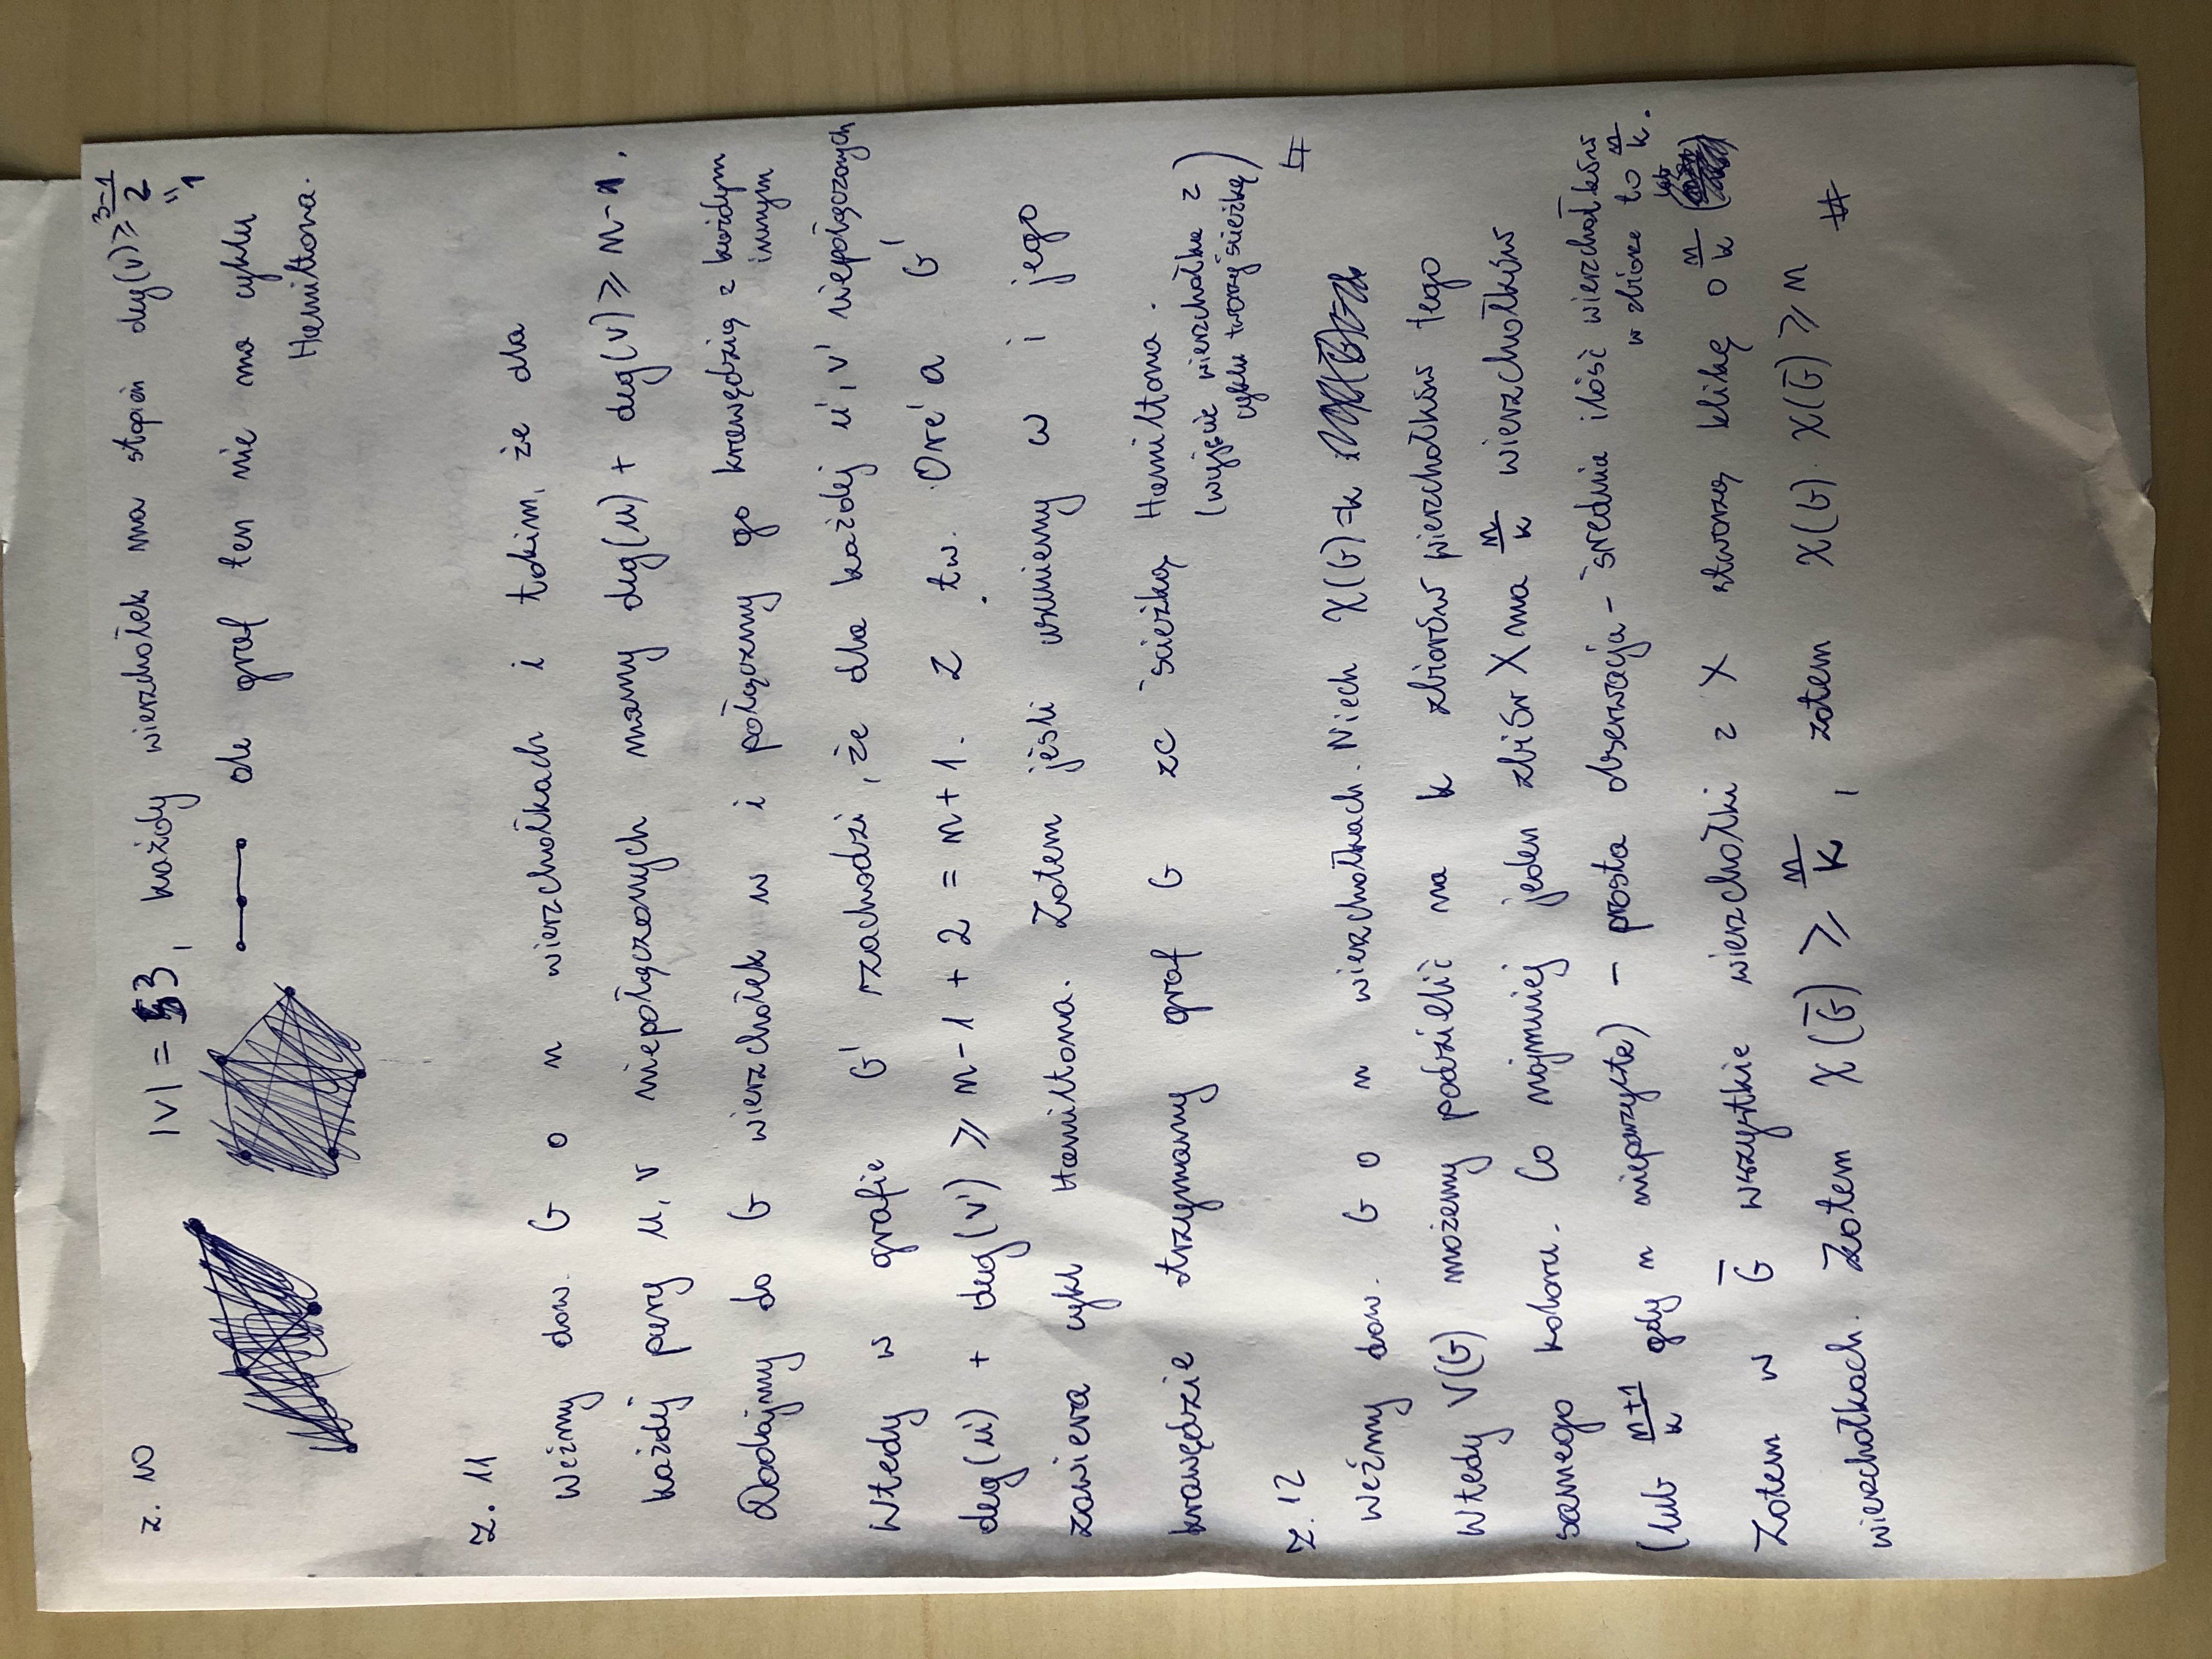 z. 10
|V| = 3, każdy wierzchołek ma stopień deg(v) ≥ \frac{3-1}{2} = 1
ale graf ten nie ma cyklu
Hamiltona.
Z. 11
Weźmy dow. G o n wierzchołkach i takim, że dla
każdej pary u, v niepołączonych mamy deg(u) + deg(v) ≥ n-1.
Dodajmy do G wierzchołek w i połączmy go krawędzią z każdym
innym
Wtedy w grafie G' zachodzi, że dla każdej u', v' niepołączonych
deg(u') + deg(v') ≥ n-1 + 2 = n+1. Z tw. Ore'a G'
zawiera cykl Hamiltona. Zatem jeśli usuniemy w i jego
krawędzie otrzymamy graf G ze ścieżką Hamiltona.
(wyjęcie wierzchołka z
cyklu tworzy ścieżkę)
Z. 12
Weźmy dow. G o n wierzchołkach. Niech χ(G)=k
Wtedy V(G) możemy podzielić na k zbiorów wierzchołków tego
samego koloru. Co najmniej jeden zbiór X ma \frac{n}{k} wierzchołków
(lub \frac{n+1}{k} gdy n nieparzyste) - prosta obserwacja - średnia ilość wierzchołków
w zbiorze to \frac{n}{k}.
Zatem w \bar{G} wszystkie wierzchołki z X stworzą klikę o \frac{n}{k}
wierzchołkach. Zatem χ(\bar{G}) ≥ \frac{n}{k}, zatem χ(G) · χ(\bar{G}) ≥ n